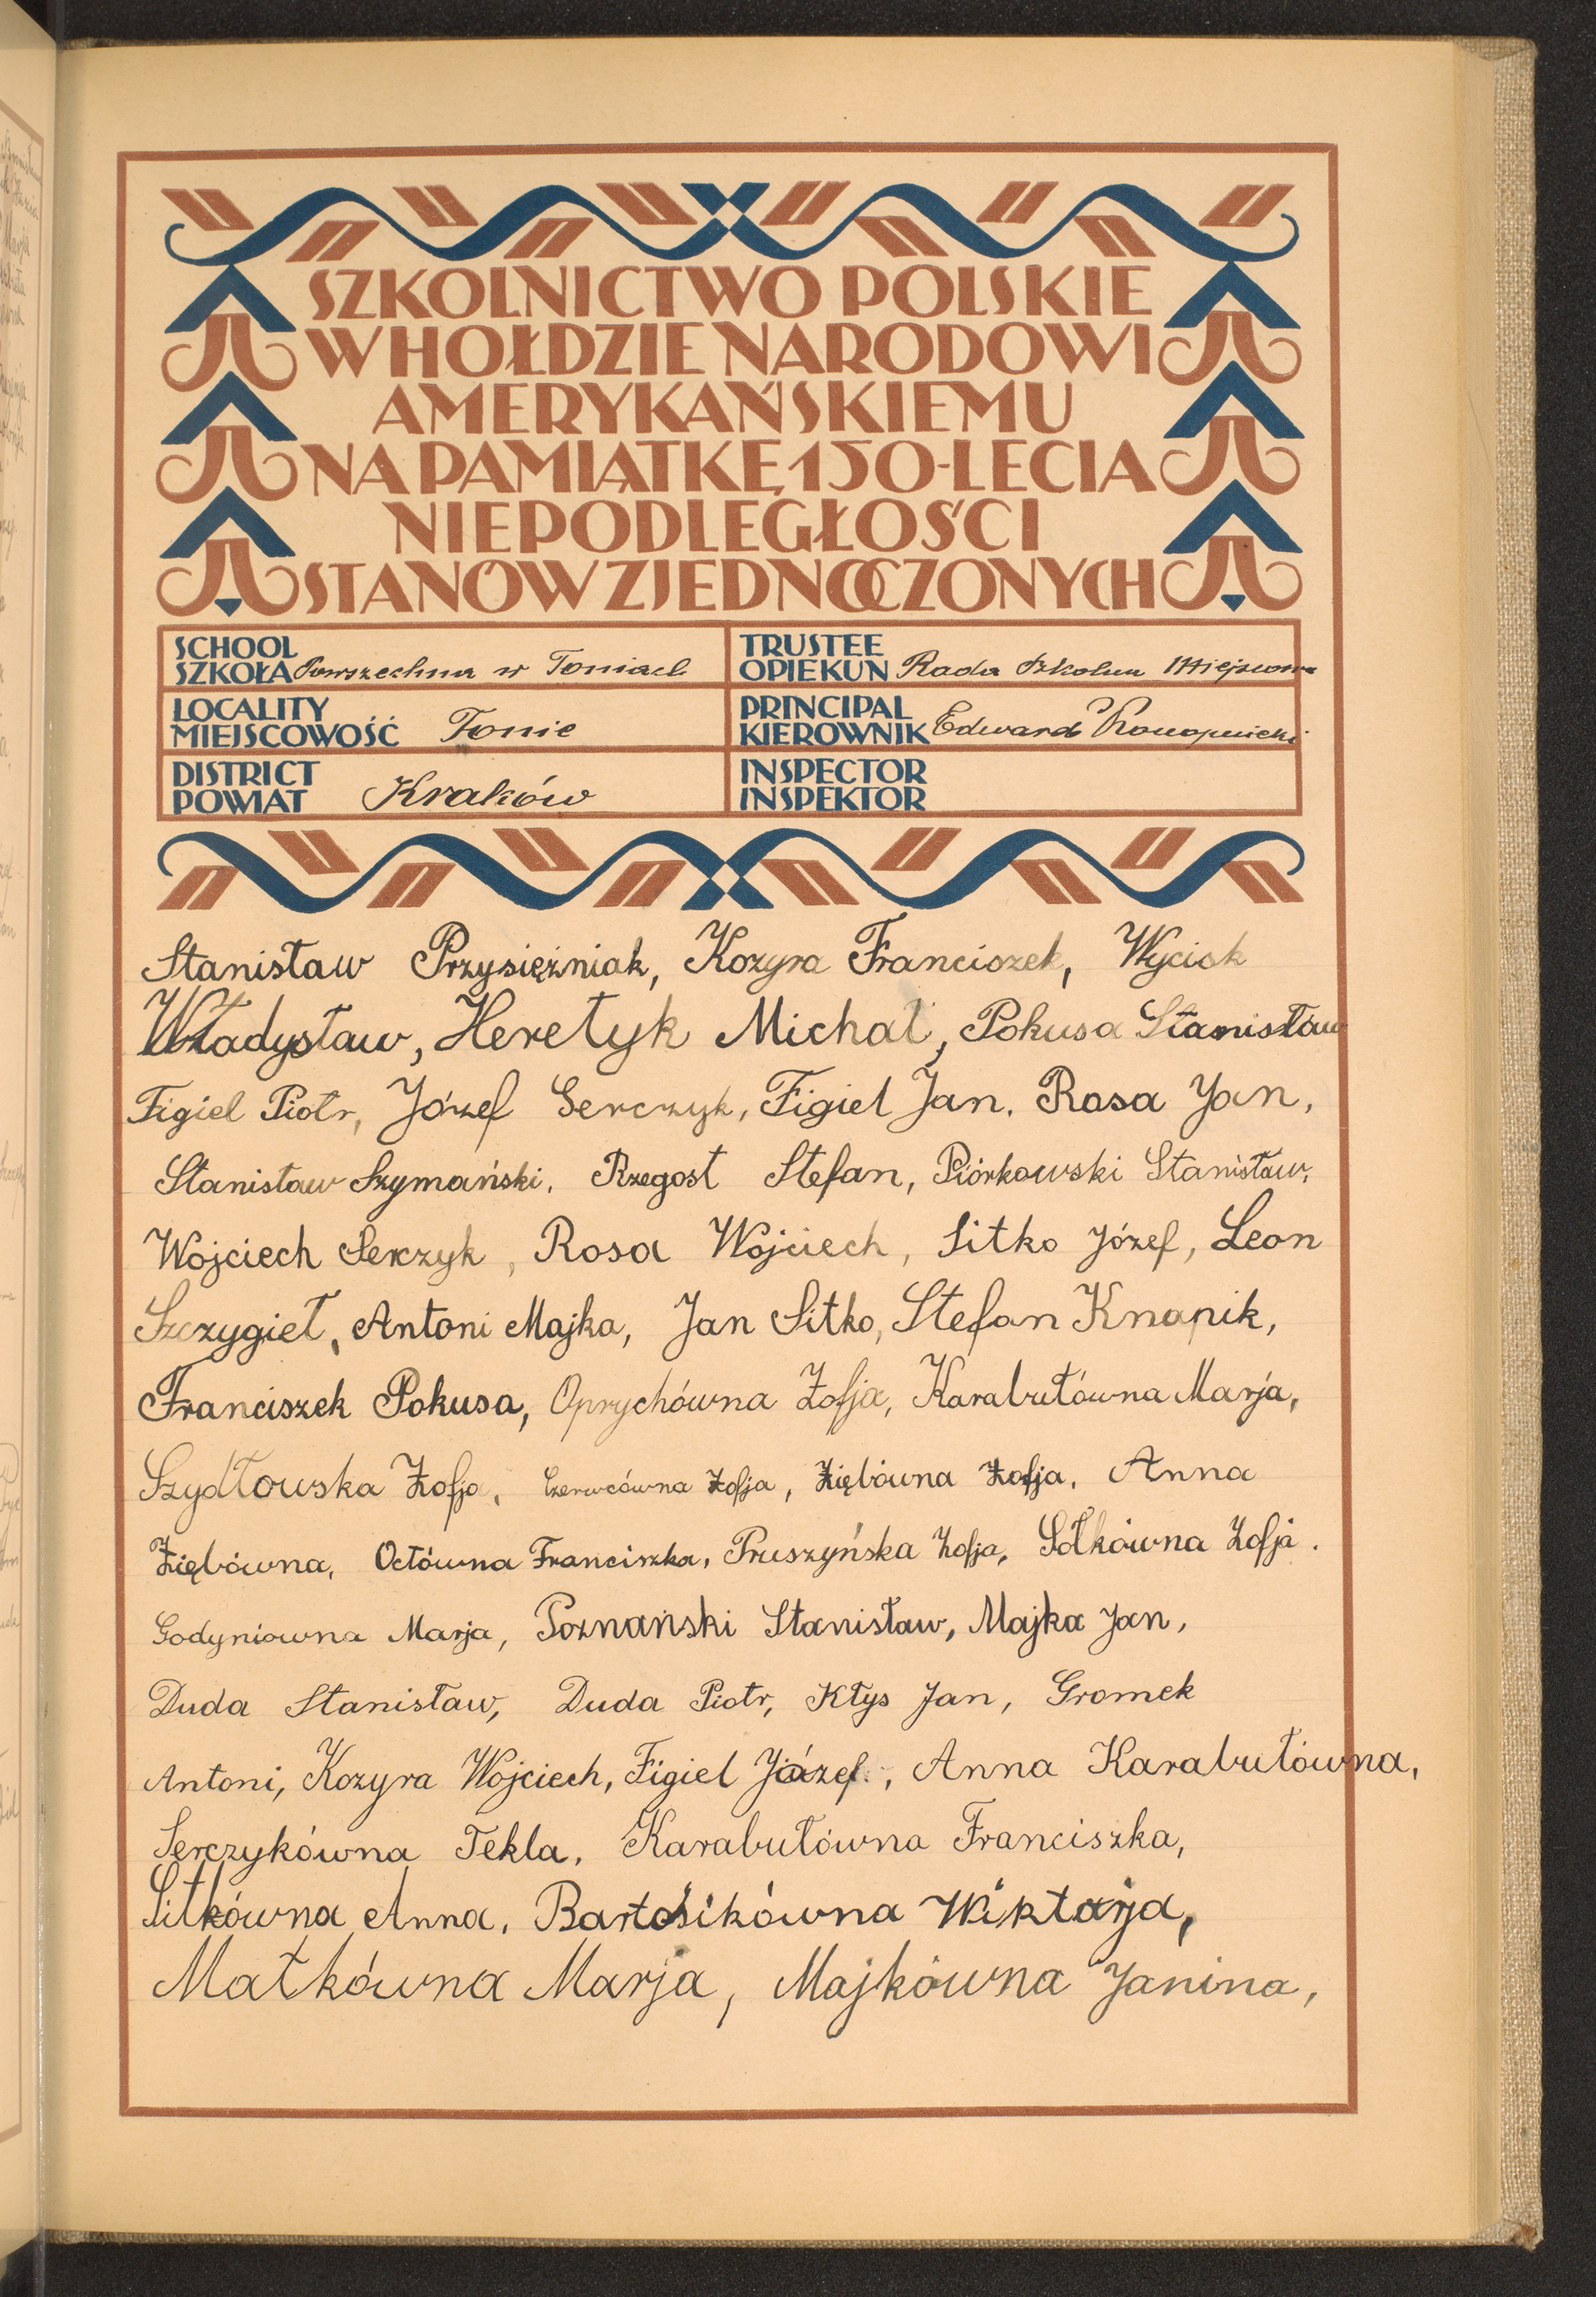 SZKOLNICTWO POLSKIE
W HOŁDZIE NARODOWI
AMERYKAŃSKIEMU
NA PAMIĄTKĘ 150-LECIA
NIEPODLEGŁOŚCI
STANÓW ZJEDNOCZONYCH
SCHOOL
SZKOŁA Powszechna w Toniach
TRUSTEE
OPIEKUN Rada Szkolna Miejscowa
LOCALITY
MIEJSCOWOŚĆ Tonie
PRINCIPAL
KIEROWNIK Edward Konopnicki
DISTRICT
POWIAT Kraków
INSPECTOR
INSPEKTOR
Stanisław Przysiężniak, Kozyra Franciszek, Wycisk
Władysław, Heretyk Michał, Pokusa Stanisław
Figiel Piotr, Józef Serczyk, Figiel Jan, Rosa Jan,
Stanisław Szymański, Rzegost Stefan, Piórkowski Stanisław,
Wojciech Serczyk, Rosa Wojciech, Sitko Józef, Leon
Szczygieł, Antoni Majka, Jan Sitko, Stefan Knapik,
Franciszek Pokusa, Oprychówna Zofja, Karabutówna Marja,
Szydłowska Zofja, Czerwcówna Zofja, Ziębówna Zofja, Anna
Ziębówna, Octówna Franciszka, Pruszyńska Zofja, Sołkówna Zofja.
Godyniowna Marja, Poznański Stanisław, Majka Jan,
Duda Stanisław, Duda Piotr, Kłys Jan, Gromek
Antoni, Kozyra Wojciech, Figiel Józef, Anna Karabutówna,
Serczykówna Tekla, Karabutówna Franciszka,
Sitkówna Anna, Bartosikówna Wiktorja,
Matkówna Marja, Majkówna Janina,